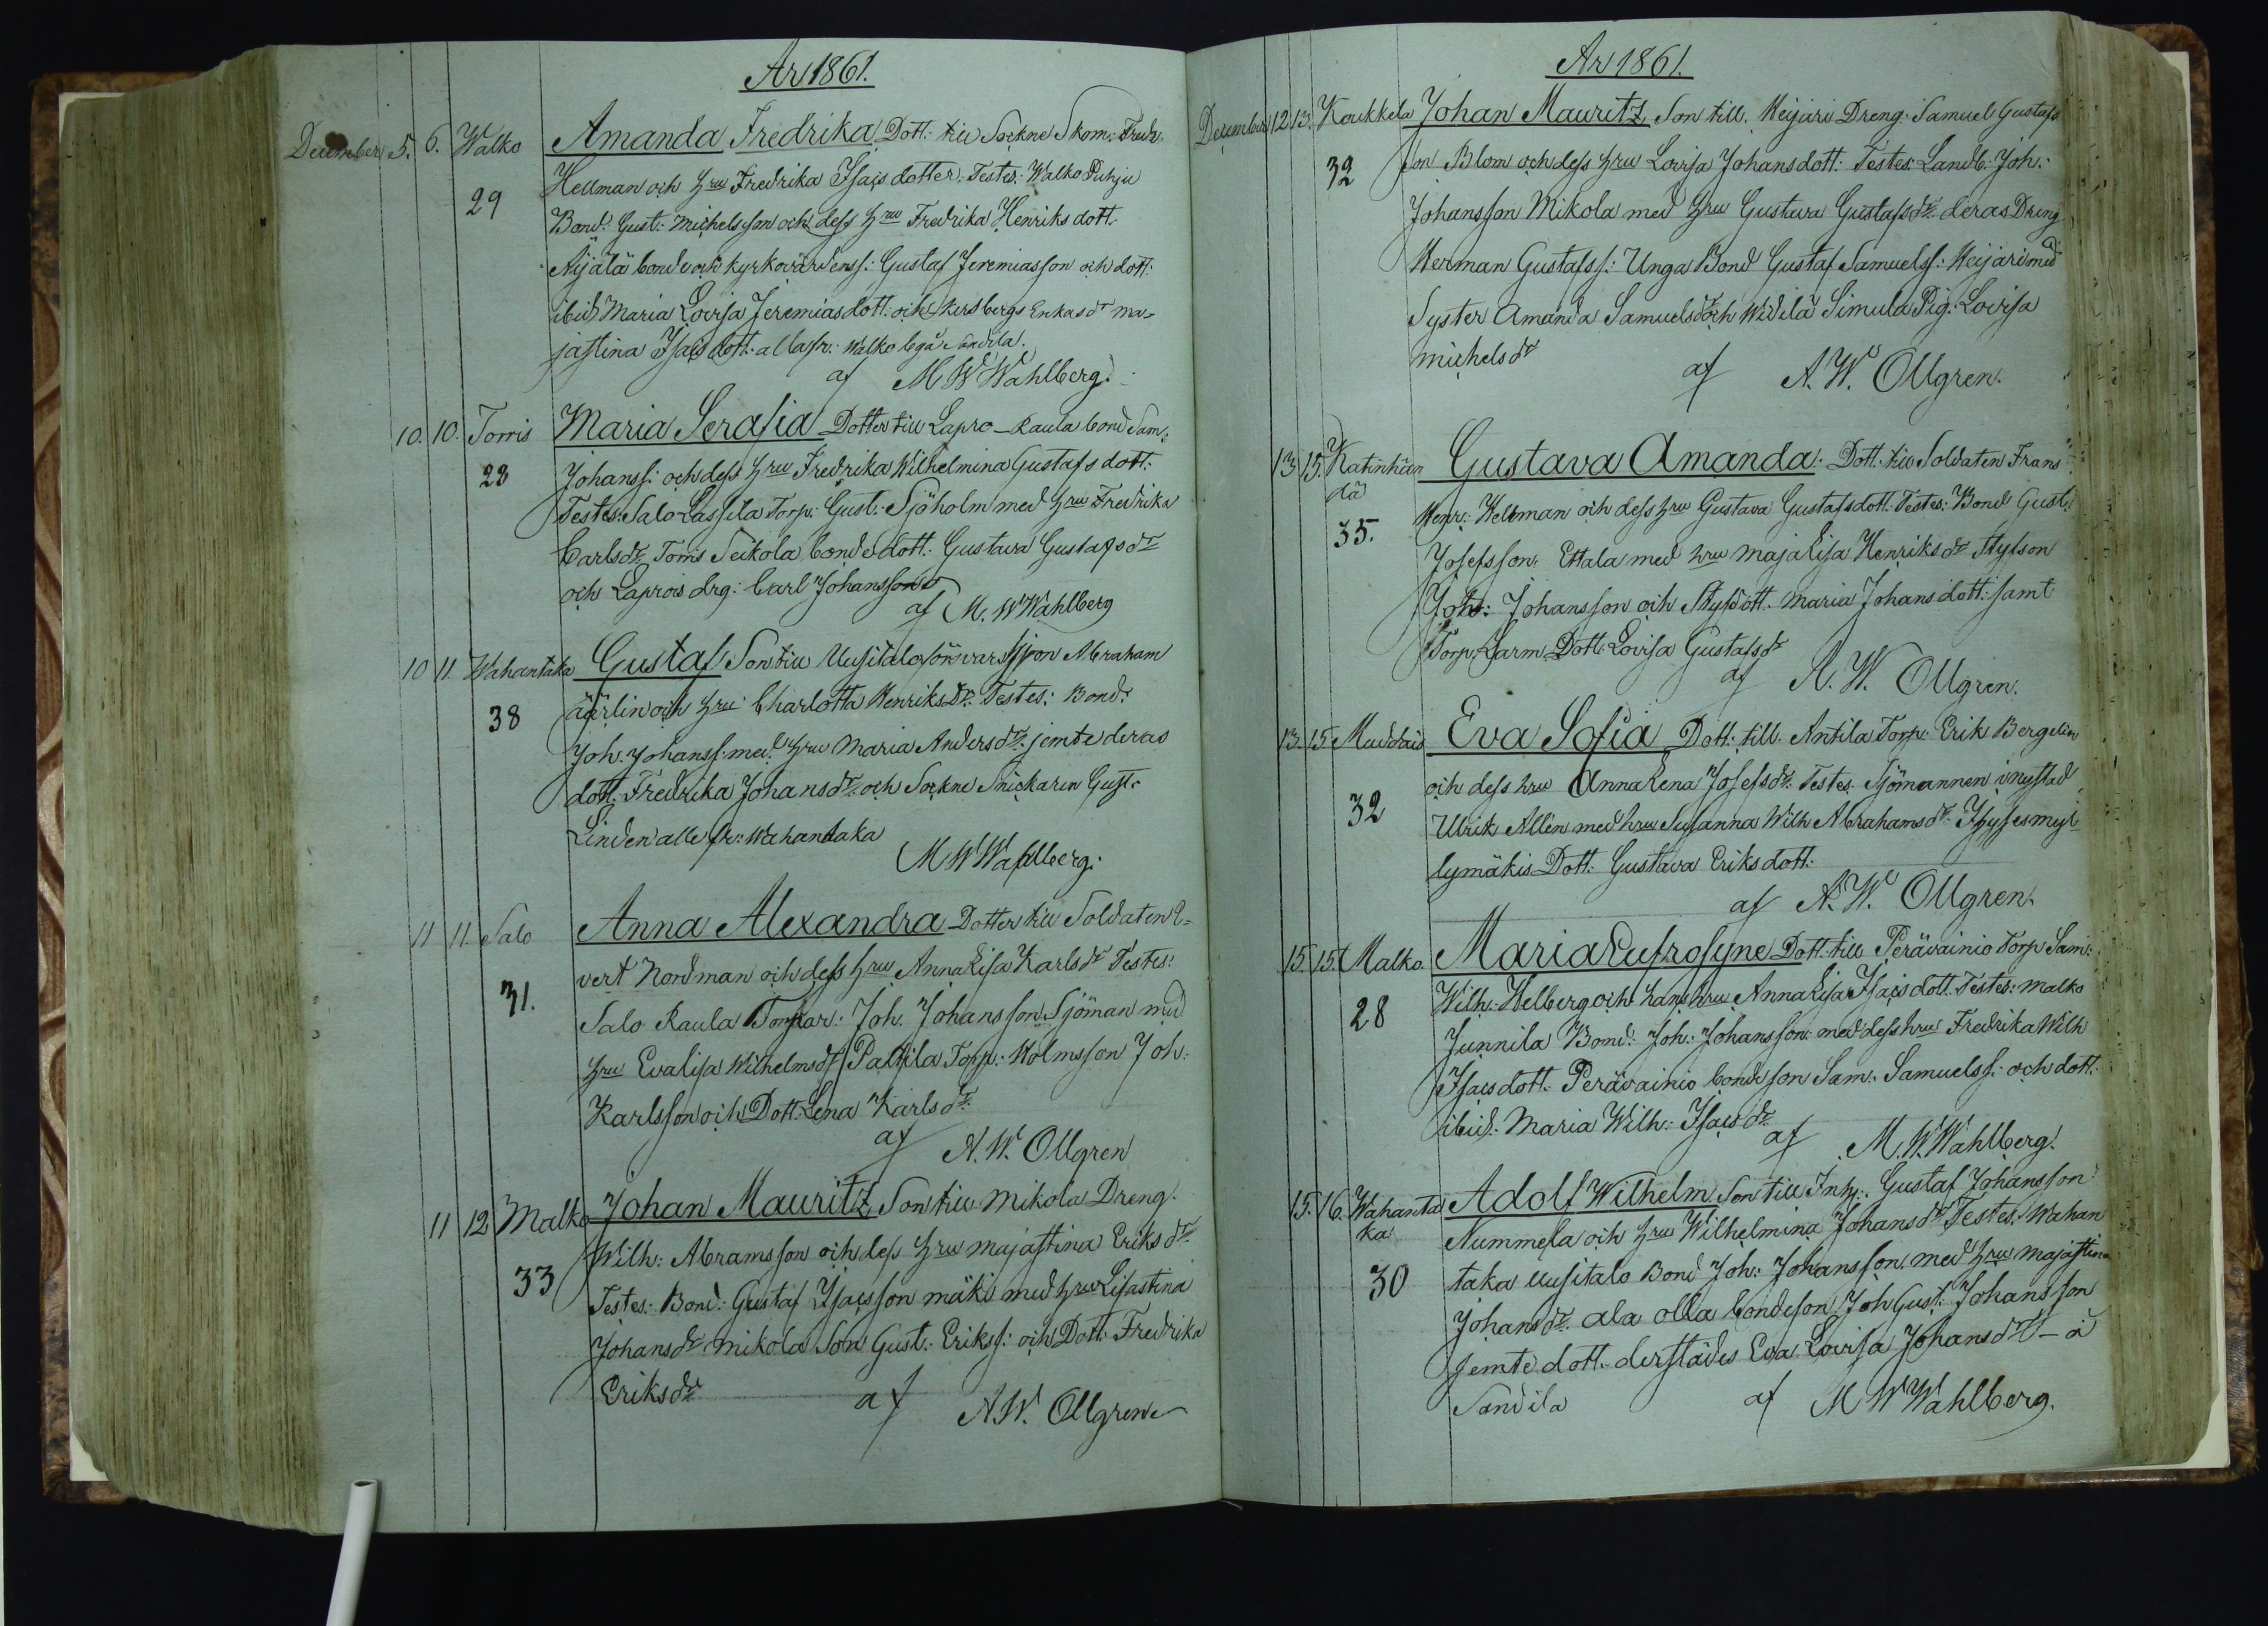 År 1861.
December 5. 6. Walko Amanda Fredrika Dott: till Sockne Skom: Fredr.
29 Hellman och hru Fredrika Isacsdotter. Testes: Walko Puhju
Bond: Gust: Michelsson och dess hru Fredrika Henriksdott
Äijälä bonde och kyrkovärdens s: Gustaf Jeremiasson och dott:
ibid Maria Lovisa Jeremiasdott: och Kersbergs Enkas dr Ma-
jastina Isacsdott: alla fr: Walko by å Sandila.
af M W Wahlberg.
10. 10. Torris Maria Serafia Dotter till Lapro-Raula bond Sam:
28 Johanss: och dess hru Fredrika Wilhelmina Gustafsdott:
Testes: Salo Lassila Torp: Gust: Sjöholm med hru Fredrika
Carlsdr Torris Seikola bondedott: Gustava Gustafsdr
och Laprois drg: Carl Johansson
af M. W Wahlberg
10 11. Wahantaka Gustaf Son till Uusitalo försvarskpon Abraham
38 äärlin och hru Charlotta Henriksdr: Testes: Bond:
Joh. Johanss: med hru Maria Andersdr: jemte deras
dott. Fredrika Johansdr och Sockne Snickaren Gust:
Linden alle fr: Wahantaka
M W Wahlberg.
11 11. Salo Anna Alexandra Dotter till Soldaten E-
31. vert Nordman och dess hru Anna Lisa Karlsdr Testes:
Salo Raula Torpar: Joh. Johansson Sjöman med
hru Evalisa Wilhelmsdr Paltila Torp: Holmsson Joh:
Karlsson och Dott: Lena Karlsdr.
af A. W. Ollgren
11 12 Malko Johan Mauritz Son till Mikola Dreng.
33 Wilh: Abramsson och dess hru Majastina Eriksdr
Testes: Bond: Gustaf Isacsson Mäki med hru Lisastina
Johansdr Mikola Son Gust: Erikss: och Dott: Fredrika
Eriksdr af A. W. Ollgren
År 1861.
December 12 13. Koukkela Johan Mauritz Son till. Heijari Dreng: Samuel Gustafs
32 son Blom och dess hru Lovisa Johansdott: Testes: Landb: Joh:
Johansson Mikola med hru Gustava Gustafsdr deras Dreng
Herman Gustafss: Unga Bond Gustaf Samuelss: Heijari med
Syster Amanda Samuelsdr och Widilä Simula Pig: Lovisa
Michelsdr
af A. W. Ollgren.
13 15. Katinhän Gustava Amanda Dott: till Soldaten Frans
dä
35. Henr: Hellman och dess hru Gustava Gustafsdott: Testes: Bond Gust:
Josefsson. Ettala med hru Maja Lisa Henriksdr Styfson
Joh: Johansson och Styfdott: Maria Johansdott: samt
Torp: Larm Dott: Lovisa Gustafsdr
af A. W. Ollgren.
13. 15 Muddais Eva Sofia Dott: till. Antila Torp: Erik Bergelin
32 och dess hru Anna Lena Josefsdr. Testes. Sjömannen i nystad
Ulrik Allén med hru Susanna Wilh Abrahamsdr
lymäkis Dott: Gustava Eriksdott:
af A. W. Ollgren.
15. 15. Malko. Maria Eufrosyne Dott: till Perävainio Torp Sam:
28 Wilh: Helberg och hans hru Anna Lisa Isacsdott: Testes: Malko
Junnila Bond: Joh: Johansson: med dess hru Fredrika Wilh
Isacsdott: Perävainio bondeson Sam. Samuelss: och dott:
ibid: Maria Wilh: Isacsdr
af M. W. Wahlberg.
15. 16. Wahanta Adolf Wilhelm Son till Inh: Gustaf Johansson
ka Nummela och hru Wilhelmina Johansdr Testes. Wahan
30 taka Uusitalo Bond Joh: Johansson med hru Majastina
Johansdr. ala olla bondeson Joh Gust: Johansson
jemte dott: derstädes Eva Lovisa Johansdr – å
Sandila af M W Wahlberg.